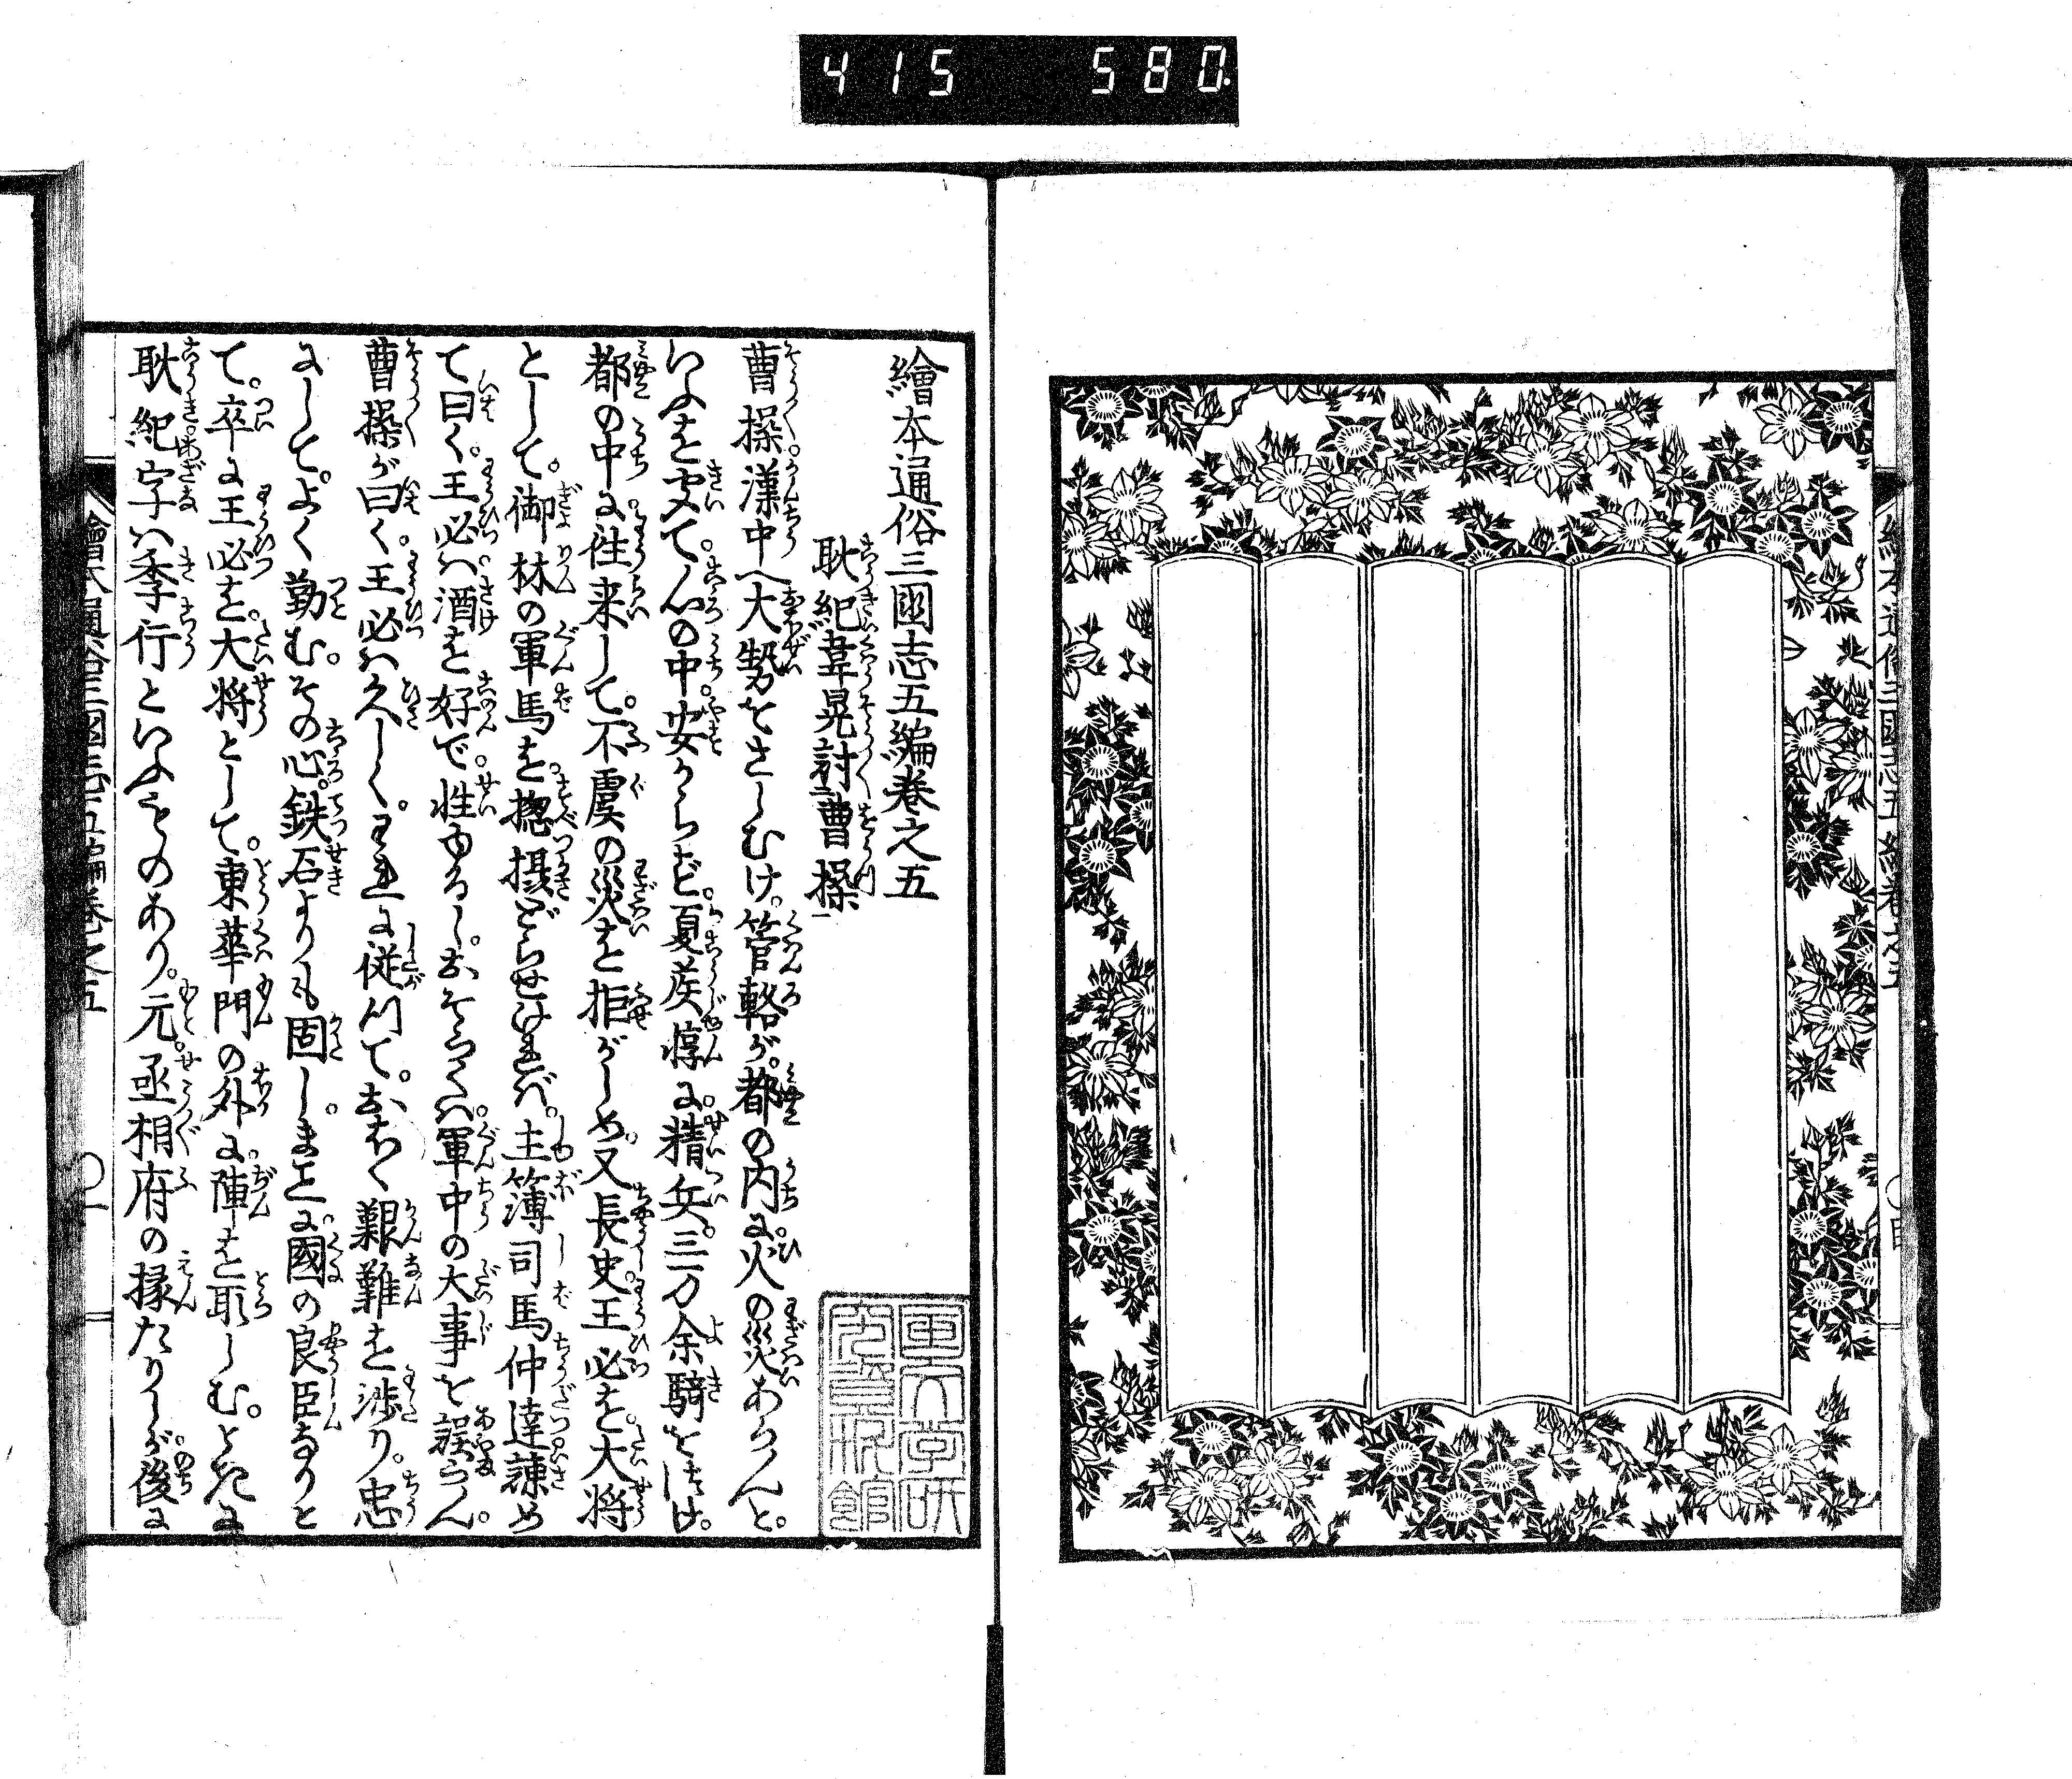 415 580
繪本通俗三國志五編巻之五
耿紀韋晃討曹操
曹操漢中へ大勢をさしむけ。管輅が。都の内に。火の災あらんと。
いふを实て。心の中。安からず。夏侯惇に。精兵。三万余騎をつけ。
都の中に往来して。不虞の災を拒がしめ。又長史王必を。大将
として。御林の軍馬を。摠摂どらせければ。主簿司馬仲達諌め
て曰く。王必は。酒を好で。性ゆるし。おそらくは。軍中の大事を誤らん。
曹操が曰く。王必は久しく。われに従つて。おほく艱難を渉り。忠
にして。よく勤む。その心。鉄石よりも固し。まことに。國の良臣なりと
て。卒に王必を。大将として。東華門の外に。陣を取しむ。ときに
耿紀字は季行といふものあり。元。丞相府の掾たりしが。後に
繪本通俗三國志五編巻之五